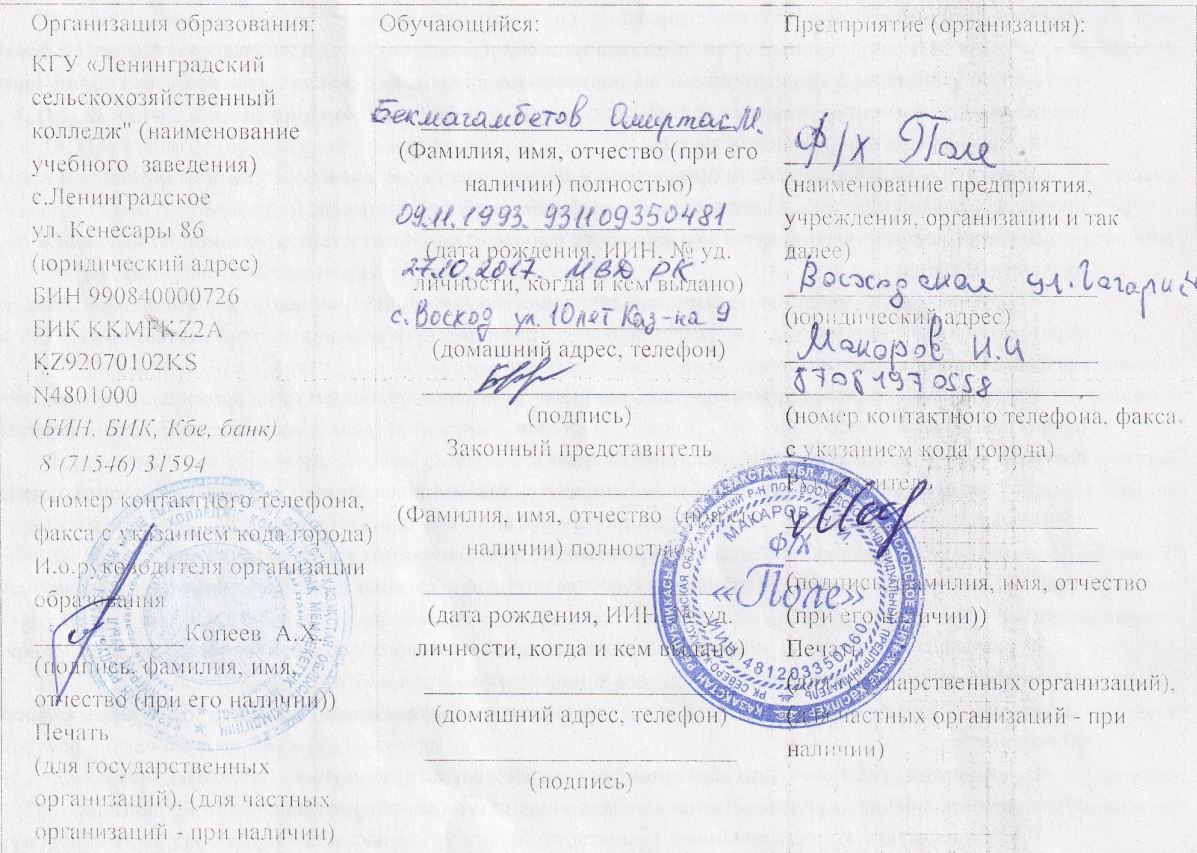 Организация образования:
КГУ «Ленинградский
сельскохозяйственный
колледж" (наименование
учебного заведения)
с.Ленинградское
ул. Кенесары 86
(юридический адрес)
БИН 990840000726
БИК KKMFKZ2A
KZ92070102KS
N4801000
(БИН, БИК, Кбе, банк)
8 (71546) 31594
(номер контактного телефона,
факса с указанием кода города)
И.о.руководителя организации
образования
Копеев А.Х.
(подпись, фамилия, имя,
отчество (при его наличии))
Печать
(для государственных
организаций), (для частных
организаций - при наличии)
Обучающийся:
Бекмагамбетов Омиртас М.
(Фамилия, имя, отчество (при его
наличии) полностью)
09.11.1993. 931109350481
(дата рождения, ИИН, № уд.
27.10.2017. МВД РК
личности, когда и кем выдано)
с. Восход ул. 10 лет Каз-на 9
(домашний адрес, телефон)
(подпись)
Законный представитель
(Фамилия, имя, отчество (при
наличии) полностью)
(дата рождения, ИИН, № уд.
личности, когда и кем выдано)
(домашний адрес, телефон)
(подпись)
Предприятие (организация):
ф/х Поле
(наименование предприятия,
учреждения, организации и так
далее)
ул. Гагарин
(юридический адрес)
Макаров Н.И
87081970558
(номер контактного телефона, факса
с указанием кода города)
(подпись, фамилия, имя, отчество
(при его наличии))
Печать
(для государственных организаций),
(для частных организаций - при
наличии)
МАКАРОВ
Ф/Х
«Поле»